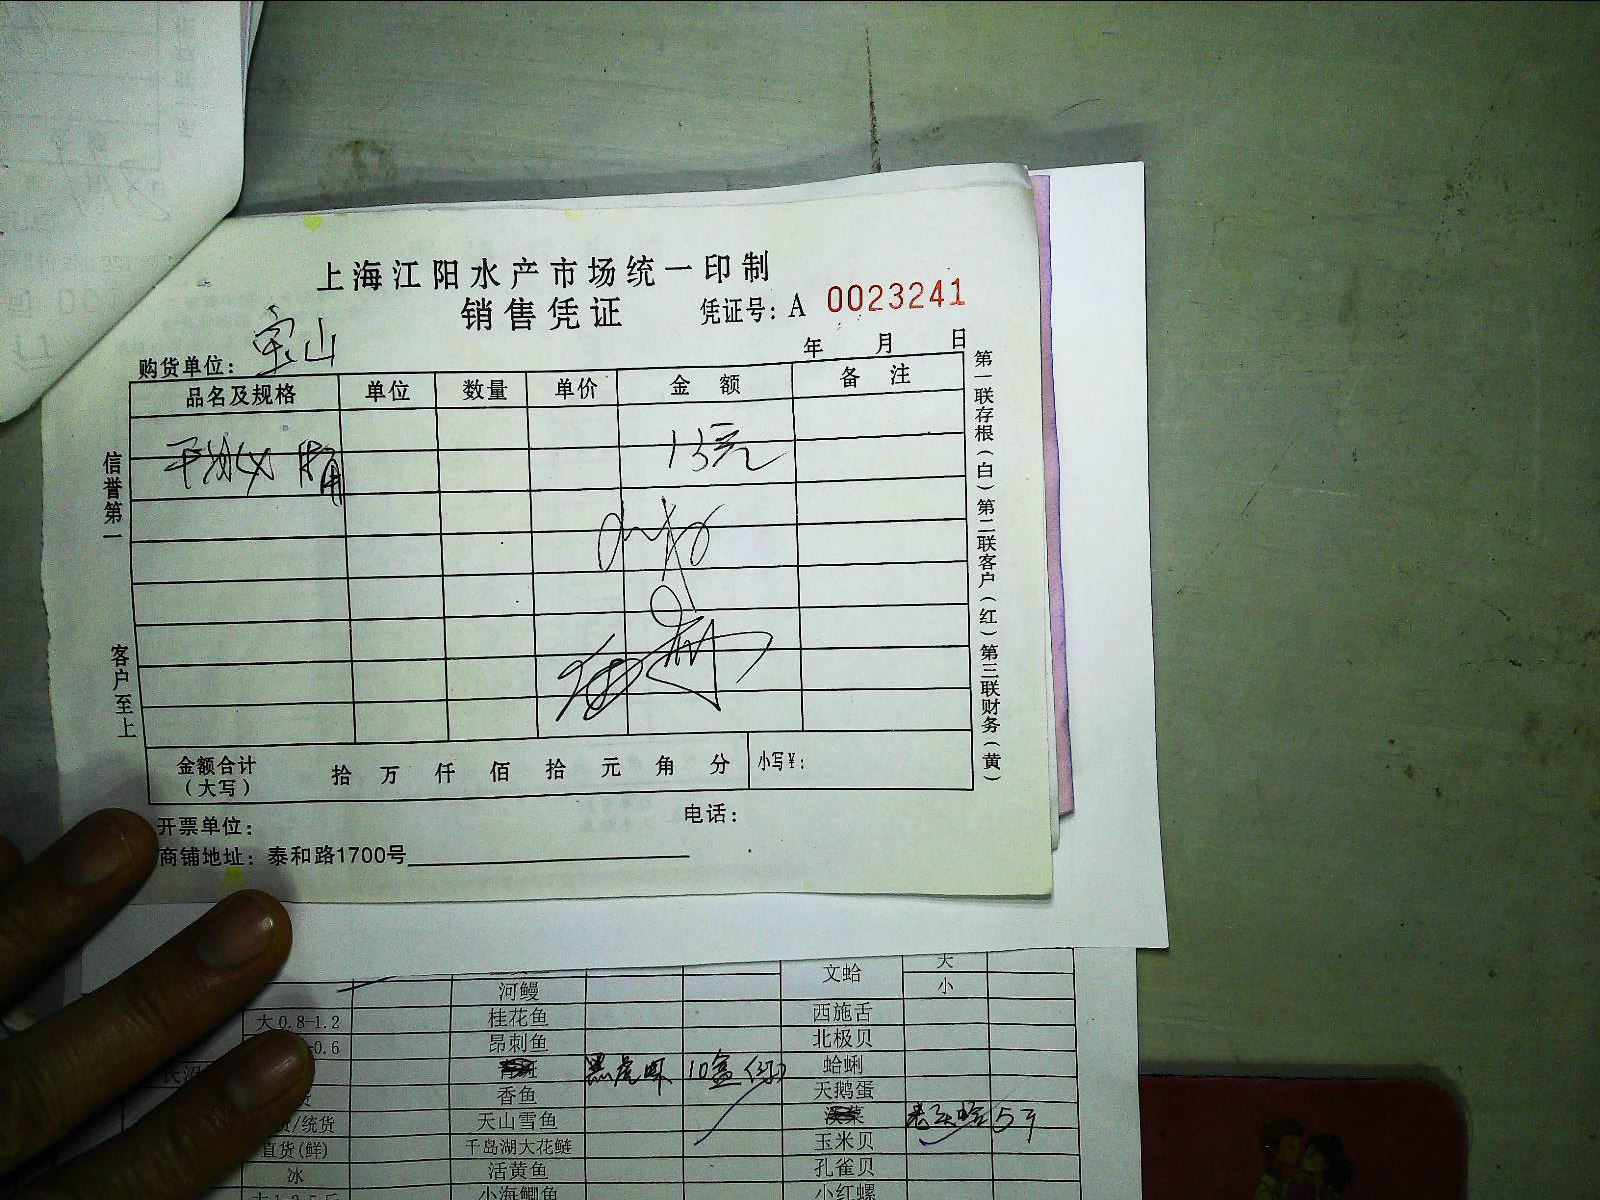 上海江阳水产市场统一印制
销售凭证 凭证号：A 0023241
购货单位：宝山 年 月 日
品名及规格 单位 数量 单价 金额 备注
13元
金额合计（大写） 拾 万 仟 佰 拾 元 角 分 小写￥：
开票单位： 电话：
商铺地址：泰和路1700号
信誉第一
客户至上
第一联存根（白）第二联客户（红）第三联财务（黄）
文蛤 大
河鳗 小
大0.8-1.2 桂花鱼 西施舌
0.6 昂刺鱼 北极贝
黑虎虾 10盒 蛤蜊
香鱼 天鹅蛋
/统货 天山雪鱼 老头蛤 5斤
直货(鲜) 千岛湖大花鲢 玉米贝
冰 活黄鱼 孔雀贝
小海鲫鱼 小红螺